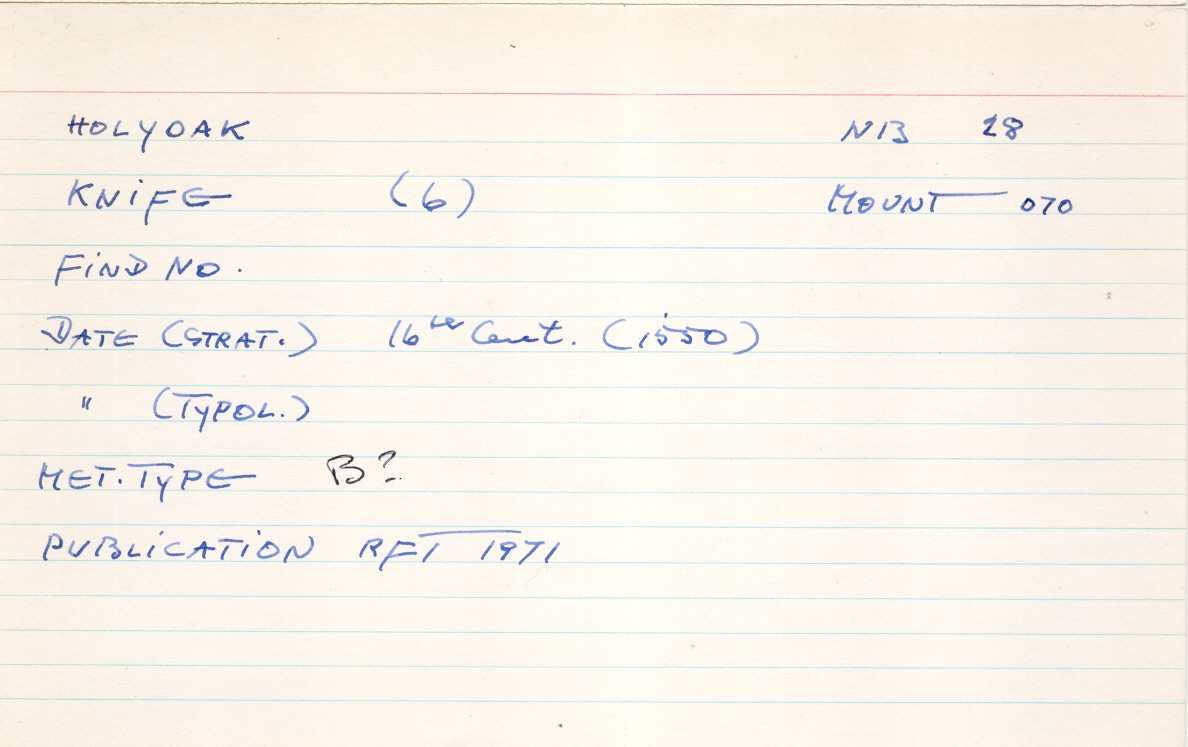 HOLYOAK NB 28
KNIFE (6) MOUNT 070
FIND NO.
DATE (STRAT.) 16th Cent. (1550)
" (TYPOL.)
MET. TYPE B?
PUBLICATION RFT 1971